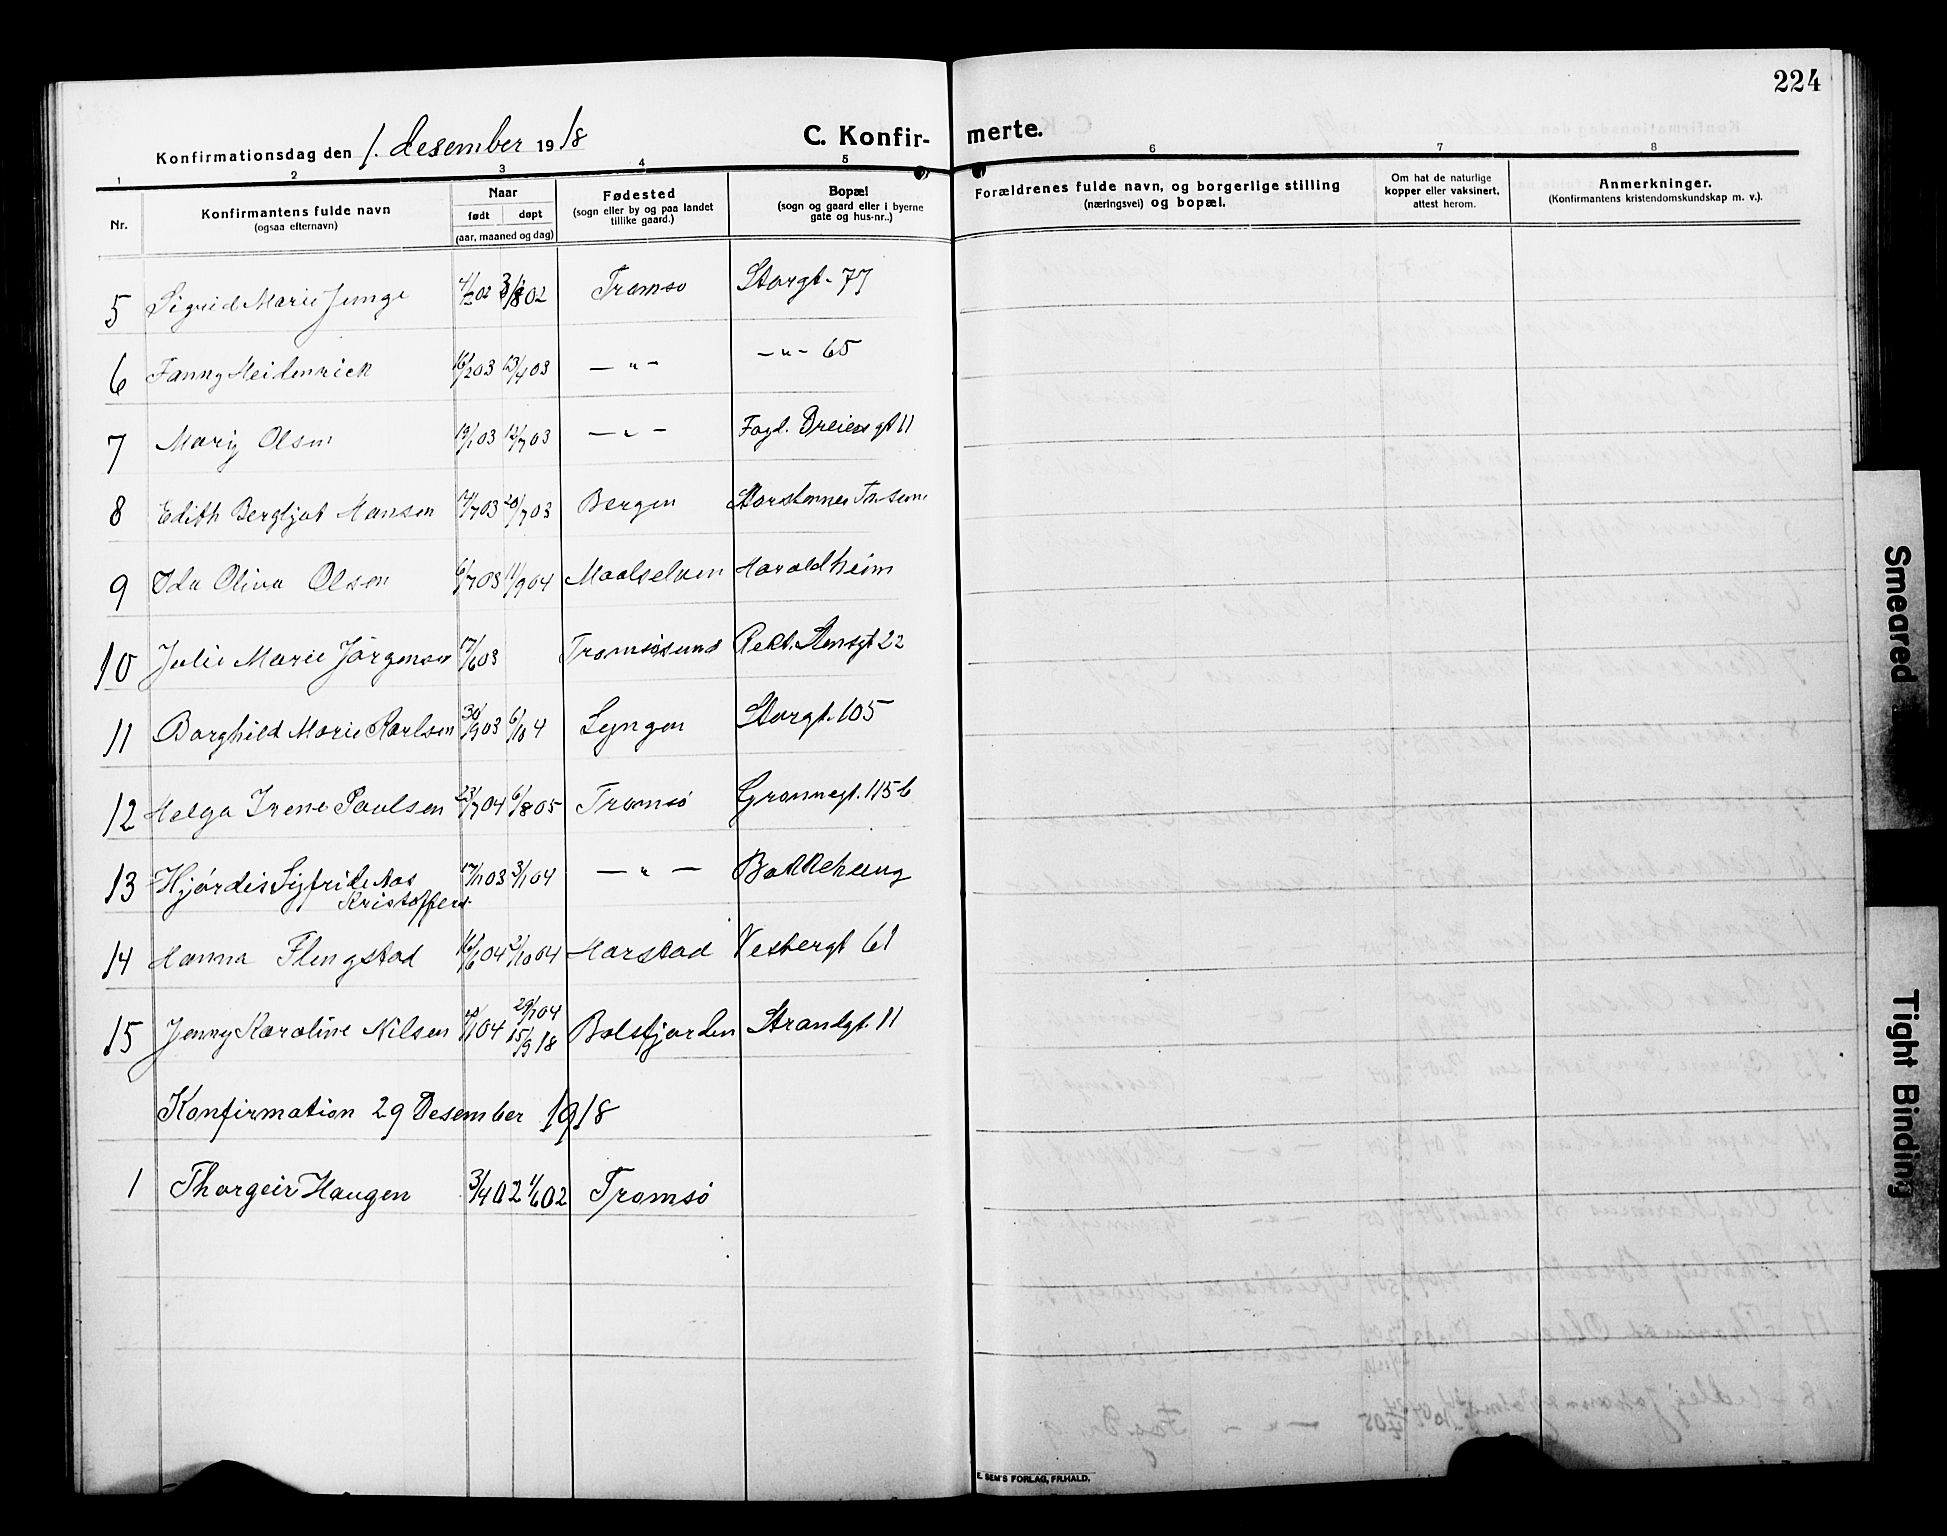 224
Konfirmationsdag den 1. desember 1918
C. Konfir- merte.
1 2 3 4 5 6 7 8
Nr.
Konfirmantens fulde navn
(ogsaa efternavn)
Naar
født døpt
(aar, maaned og dag)
Fødested
(sogn eller by og paa landet
tillike gaard.)
Bopæl
(sogn og gaard eller i byerne
gate og hus-nr..)
Forældrenes fulde navn, og borgerlige stilling
(næringsvei) og bopæl.
Om hat de naturlige
kopper eller vaksinert,
attest herom.
Anmerkninger.
(Konfirmantens kristendomskundskap m. v.).
5 Sigrid Marie Junge 02 3/8 02 Tromsø Storgt. 77
6 Fanny Heidenrick 16/2 03 13/4 03 — " — — " — 65
7 Mary Olsen 19/1 03 12/7 03 — " — Fogd. Dreiers gt 11
8 Edith Bergljot Hansen 03 20/7 03 Bergen Storstennes
9 Ida Oliva Olsen 6/7 03 11/9 04 Maalselven Haraldheim
10 Julie Marie Jørgensen 17/6 03 Tromsøsund Rekt. Stensgt 22
11 Borghild Marie Karlsen 30/9 03 6/1 04 Lyngen Storgt. 105
12 Helga Irene Paulsen 23/7 04 6/8 05 Tromsø Grønnegt. 115 b
13 Hjørdis Sigfride Aas 17/11 03 3/1 04 — " — Bakkehaug
Kristoffers.
14 Hanna Flengstad 16/6 04 2/10 04 Harstad Vestergt 61
15 Jenny Karoline Nilsen 04 29/1 04 Balsfjorden Strandgt. 11
15/9 18
Konfirmation 29 Desember 1918
1 Thorgeir Haugen 3/4 02 1/6 02 Tromsø
E. SEM'S FORLAG, FR.HALD.
Smeared
Tight Binding